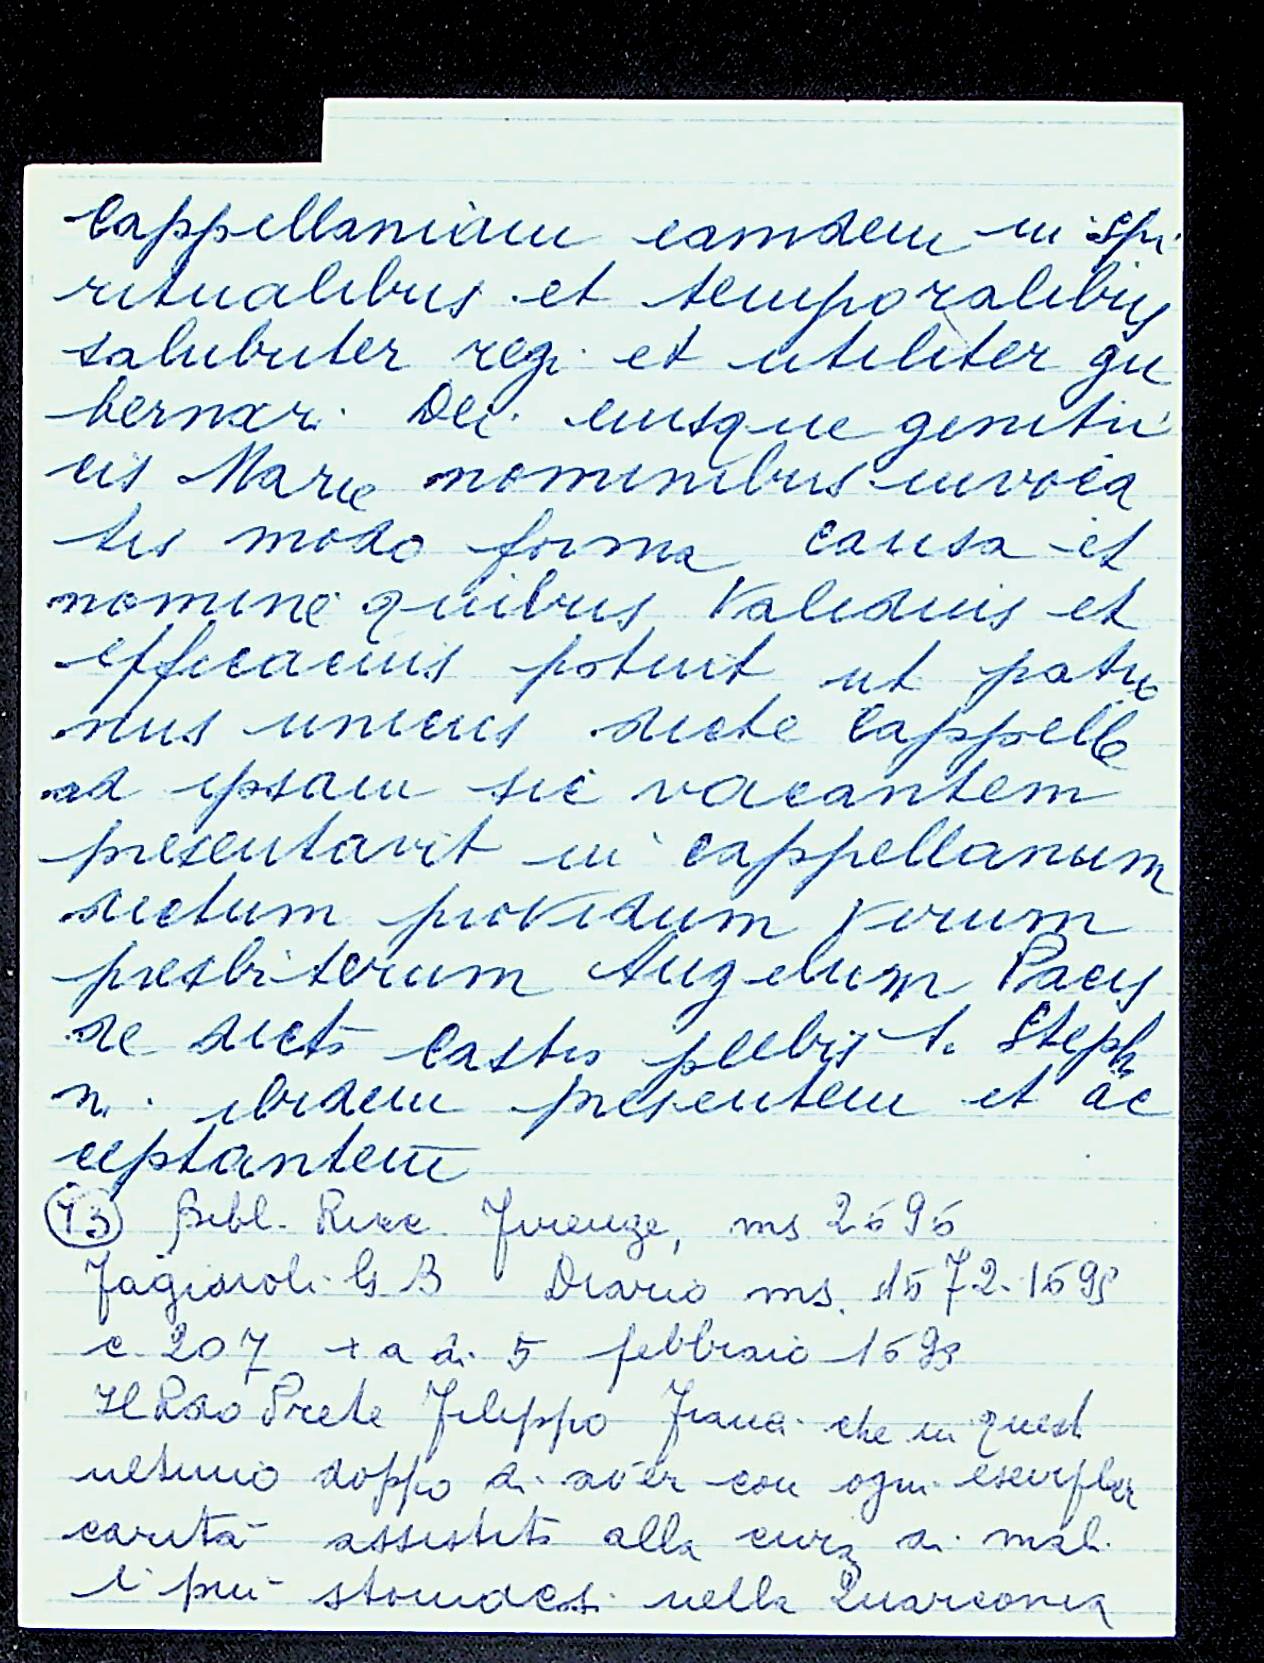 Cappellaniam eamdem in spi
ritualibus et temporalibus
salubriter regi et utiliter gu
bernari Dei eiusque genitri
cis Marie nominibus invoca
tis modo forma causa et
nomine quibus validius et
efficacius potuit ut patro
nus unicus dicte Cappelle
ad ipsam sic vacantem
presentavit in cappellanum
dictum providum virum
presbiterum Angelum Pacis
de dicto castro plebis S. Steph
ni ibidem presentem et ac
ceptantem
(13) Bibl. Ricc. Firenze, ms 2695
Fagiuoli G B Diario ms. 1672-1695
c. 207 + a di 5 febbraio
Il Rdo Prete Filippo Franci che in quest
ultimo doppo di aver con ogni esemplar
carità assistito alla cura di mali
i più stomacosi nella Quarconia